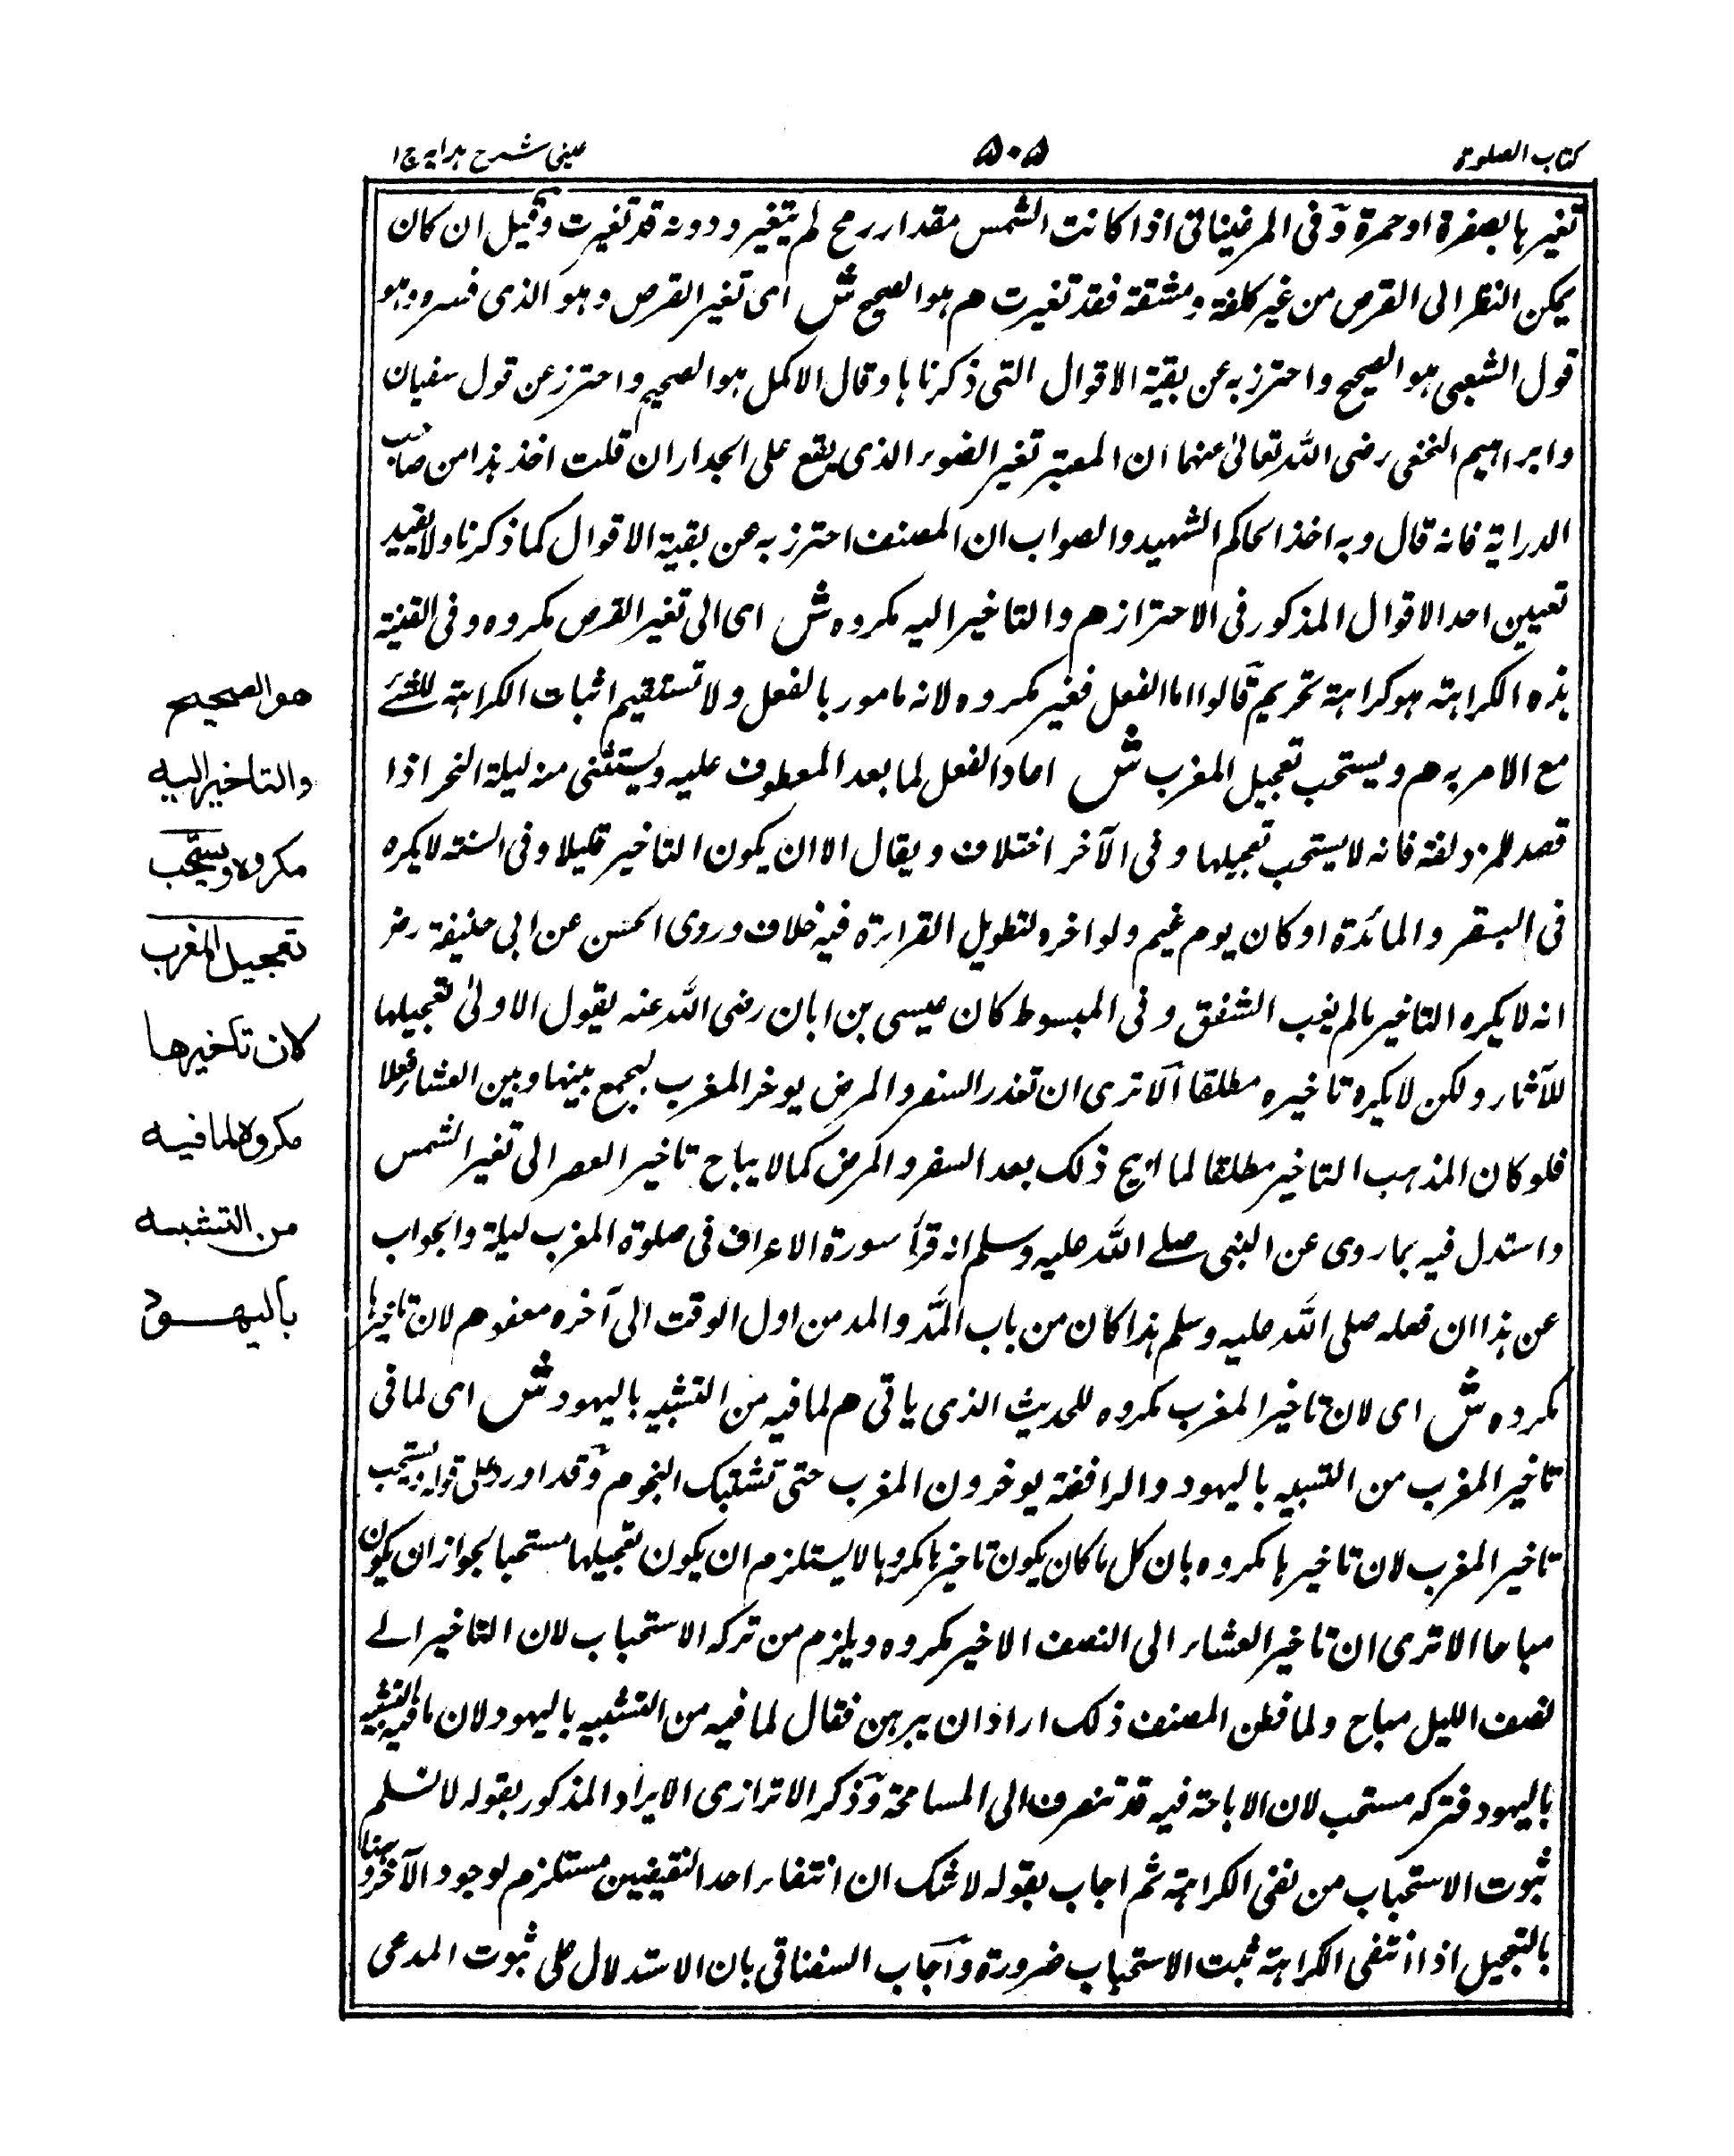 كتاب الصلوة
٥٠٥
عينى شرح هدايه ج١
تغيرها بصفرة او حمرة وفى المرغينانى اذا كانت الشمس مقدار رمح لم يتغير ودونه قد تغيرت وقيل ان كان
يمكن النظر الى القرص من غير كلفة ومشقة فقد تغيرت م هو الصحيح ش اى تغير القرص وهو الذى فسره وهو
قول الشعبى هو الصحيح واحترز به عن بقية الاقوال التى ذكرناها وقال الاكمل هو الصحيح واحترز عن قول سفيان
وابراهيم النخعى رضى الله تعالىٰ عنهما ان المعتبر تغير الضوء الذى يقع على الجدار ان قلت اخذ هذا من صاحب
الدراية فانه قال وبه اخذ الحاكم الشهيد والصواب ان المصنف احترز به عن بقية الاقوال كما ذكرنا ولا يفيد
تعيين احد الاقوال المذكور فى الاحتراز م والتاخير اليه مكروه ش اى الى تغير القرص مكروه وفى القنية
هذه الكراهة هو كراهة تحريم قالوا اما الفعل فغير مكروه لانه مامور بالفعل ولا تستقيم اثبات الكراهة للشئ
مع الامر به م ويستحب تعجيل المغرب ش اعاد الفعل لما بعد المعطوف عليه ويستثنى منه ليلة النحر اذا
قصد للمزدلفة فانه لا يستحب تعجيلها وفى الآخر اختلاف ويقال الا ان يكون التاخير قليلا وفى السنة لا يكره
فى السفر والمائدة او كان يوم غيم ولو اخره لتطويل القراءة فيه خلاف وروى الحسن عن ابى حنيفة رض
انه لا يكره التاخير مالم يغب الشفق وفى المبسوط كان عيسى بن ابان رضى الله عنه يقول الاولىٰ تعجيلها
للآثار ولكن لا يكره تاخيره مطلقا الا ترى ان تعذر السفر والمرض يوخر المغرب ليجمع بينها وبين العشاء فعلا
فلو كان المذهب التاخير مطلقا لما ابيح ذلك بعد السفر والمرض كما لا يباح تاخير العصر الى تغير الشمس
واستدل فيه بما روى عن النبى صلے الله عليه وسلم انه قرأ سورة الاعراف فى صلوة المغرب ليلة والجواب
عن هذا ان فعله صلى الله عليه وسلم هذا كان من باب المد والمد من اول الوقت الى آخره معفو م لان تاخيرها
مكروه ش اى لان تاخير المغرب مكروه للحديث الذى ياتى م لما فيه من التشبيه باليهود ش اى لما فى
تاخير المغرب من التشبيه باليهود والرافضة يوخرون المغرب حتى تشتبك النجوم وقد اورد على قوله يستحب
تاخير المغرب لان تاخيرها مكروه بان كل ما كان يكون تاخيرها مكروها لا يستلزم ان يكون تعجيلها مستحبا لجواز ان يكون
مباحا الا ترى ان تاخير العشاء الى النصف الاخير مكروه ويلزم من تركه الاستحباب لان التاخير الے
نصف الليل مباح ولما فطن المصنف ذلك اراد ان يبرهن فقال لما فيه من التشبيه باليهود لان ما فيه التشبيه
باليهود فتركه مستحب لان الاباحة فيه قد تنصرف الى المسامحة وذكر الاترازى الايراد المذكور بقوله لا نسلم
ثبوت الاستحباب من نفى الكراهة ثم اجاب بقوله لا شك ان انتفاء احد النقيضين مستلزم لوجود الآخر وههنا
بالتعجيل اذا انتفى الكراهة ثبت الاستحباب ضرورة وآجاب السغناقى بان الاستدلال على ثبوت المدعى
هو الصحيح
والتاخير اليه
مكروه ويستحب
تعجيل المغرب
لان تاخيرها
مكروه لما فيه
من التشبه
باليهود